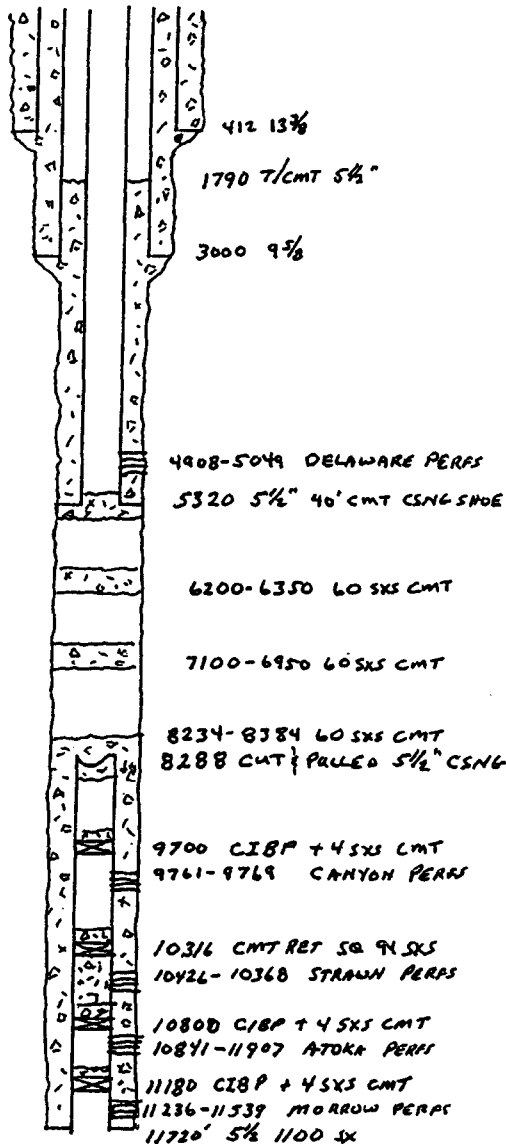 412 13 3/8
1790 T/CMT 5 1/2"
3000 9 5/8
4908-5049 DELAWARE PERFS
5320 5 1/2" 40' CMT CSNG SHOE
6200-6350 60 SXS CMT
7100-6950 60 SXS CMT
8234-8384 60 SXS CMT
8288 CUT & PULLED 5 1/2" CSNG
9700 CIBP + 4 SXS CMT
9761-9769 CANYON PERFS
10316 CMT RET SQ 94 SXS
10426-10368 STRAWN PERFS
10800 CIBP + 4 SXS CMT
10841-11907 ATOKA PERFS
11180 CIBP + 4 SXS CMT
11236-11539 MORROW PERFS
11720' 5 1/2 1100 SX